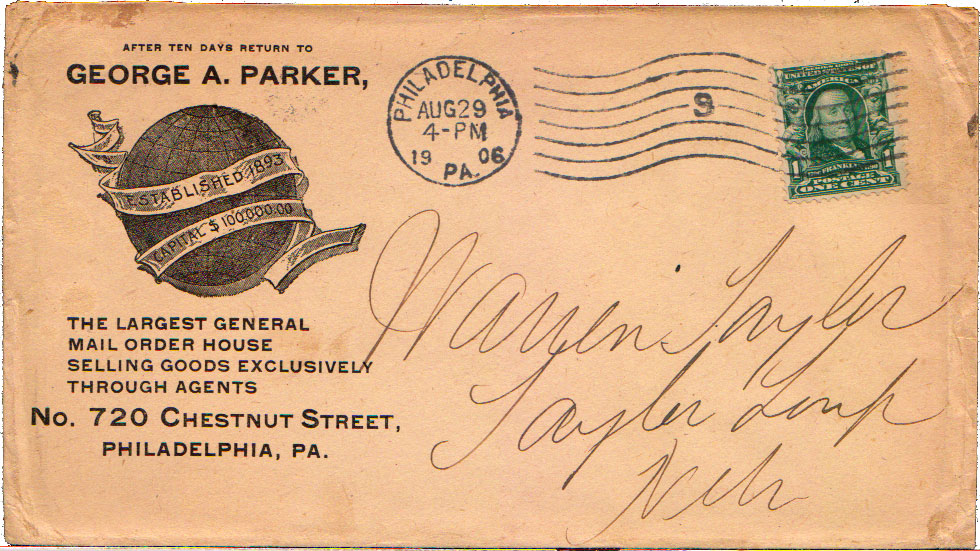 AFTER TEN DAYS RETURN TO
GEORGE A. PARKER,
ESTABLISHED 1893
CAPITAL $100,000.00
THE LARGEST GENERAL
MAIL ORDER HOUSE
SELLING GOODS EXCLUSIVELY
THROUGH AGENTS
No. 720 CHESTNUT STREET,
PHILADELPHIA, PA.
PHILADELPHIA
AUG 29
4-PM
19 06
PA.
9
UNITED STATES OF
AMERICA
1 1
POSTAGE
ONE CENT
Warren Taylor
Taylor Loup
Neb